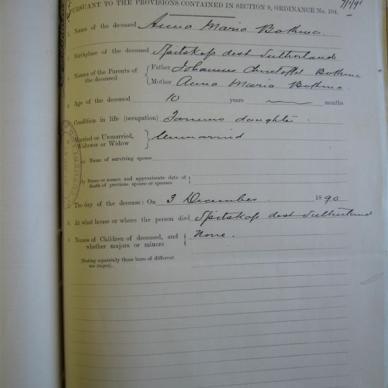 PURSUANT TO THE PROVISIONS CONTAINED IN SECTION 9, ORDINANCE No. 104.
1. Name of the deceased Anna Maria Bothma
Birthplace of the deceased Spitskop dist Sutherland
Names of the Parents of the deceased { Father Johannes Christoffel Bothma
Mother Anna Maria Bothma
Age of the deceased 10 years months
Condition in life (occupation) Farmers daughter
Married or Unmarried, Widower or Widow } Unmarried
Name of surviving spouse
Name or names and approximate date of death of previous spouse or spouses
The day of the decease: On 3 December 1890
At what house or where the person died Spitskop dist Sutherland
Names of Children of deceased, and whether majors or minors { None.
Stating separately those born of different